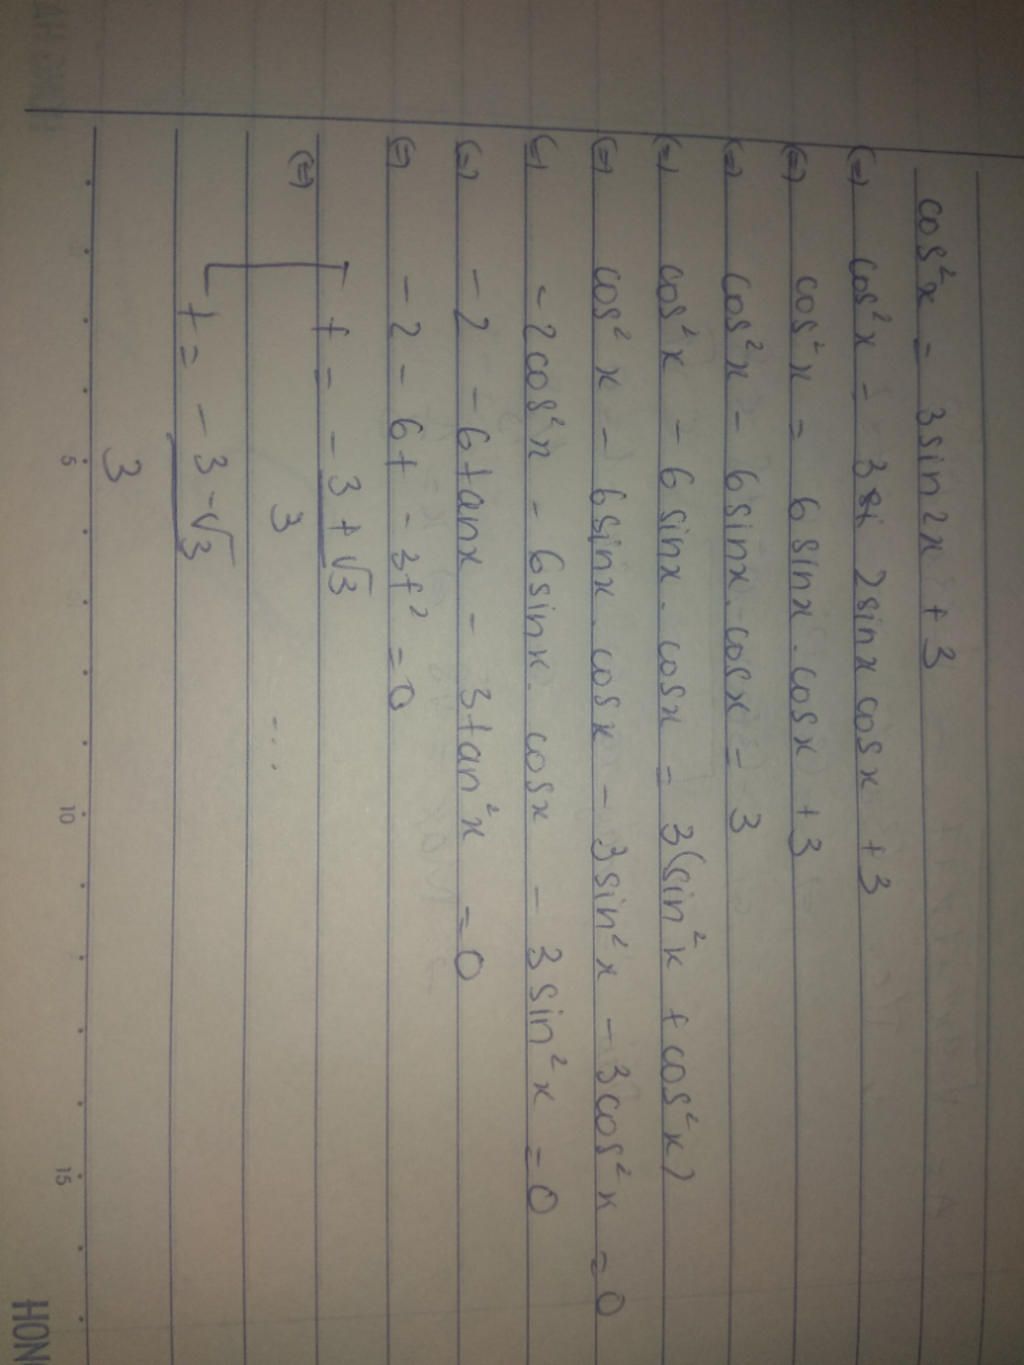 cos²x = 3sin2x + 3
(=) cos²x = 3 2sinx cosx + 3
(=) cos²x = 6sinx . cosx + 3
(=) cos²x - 6sinx . cosx = 3
(=) cos²x - 6sinx . cosx = 3(sin²x + cos²x)
(=) cos²x - 6sinx . cosx - 3sin²x - 3cos²x = 0
(=) -2cos²x - 6sinx . cosx - 3sin²x = 0
(=) -2 - 6tanx - 3tan²x = 0
(=) -2 - 6t - 3t² = 0
(=) [ t = - 3+√3
3 ...
t = -3-√3
3
5 10 15
HON